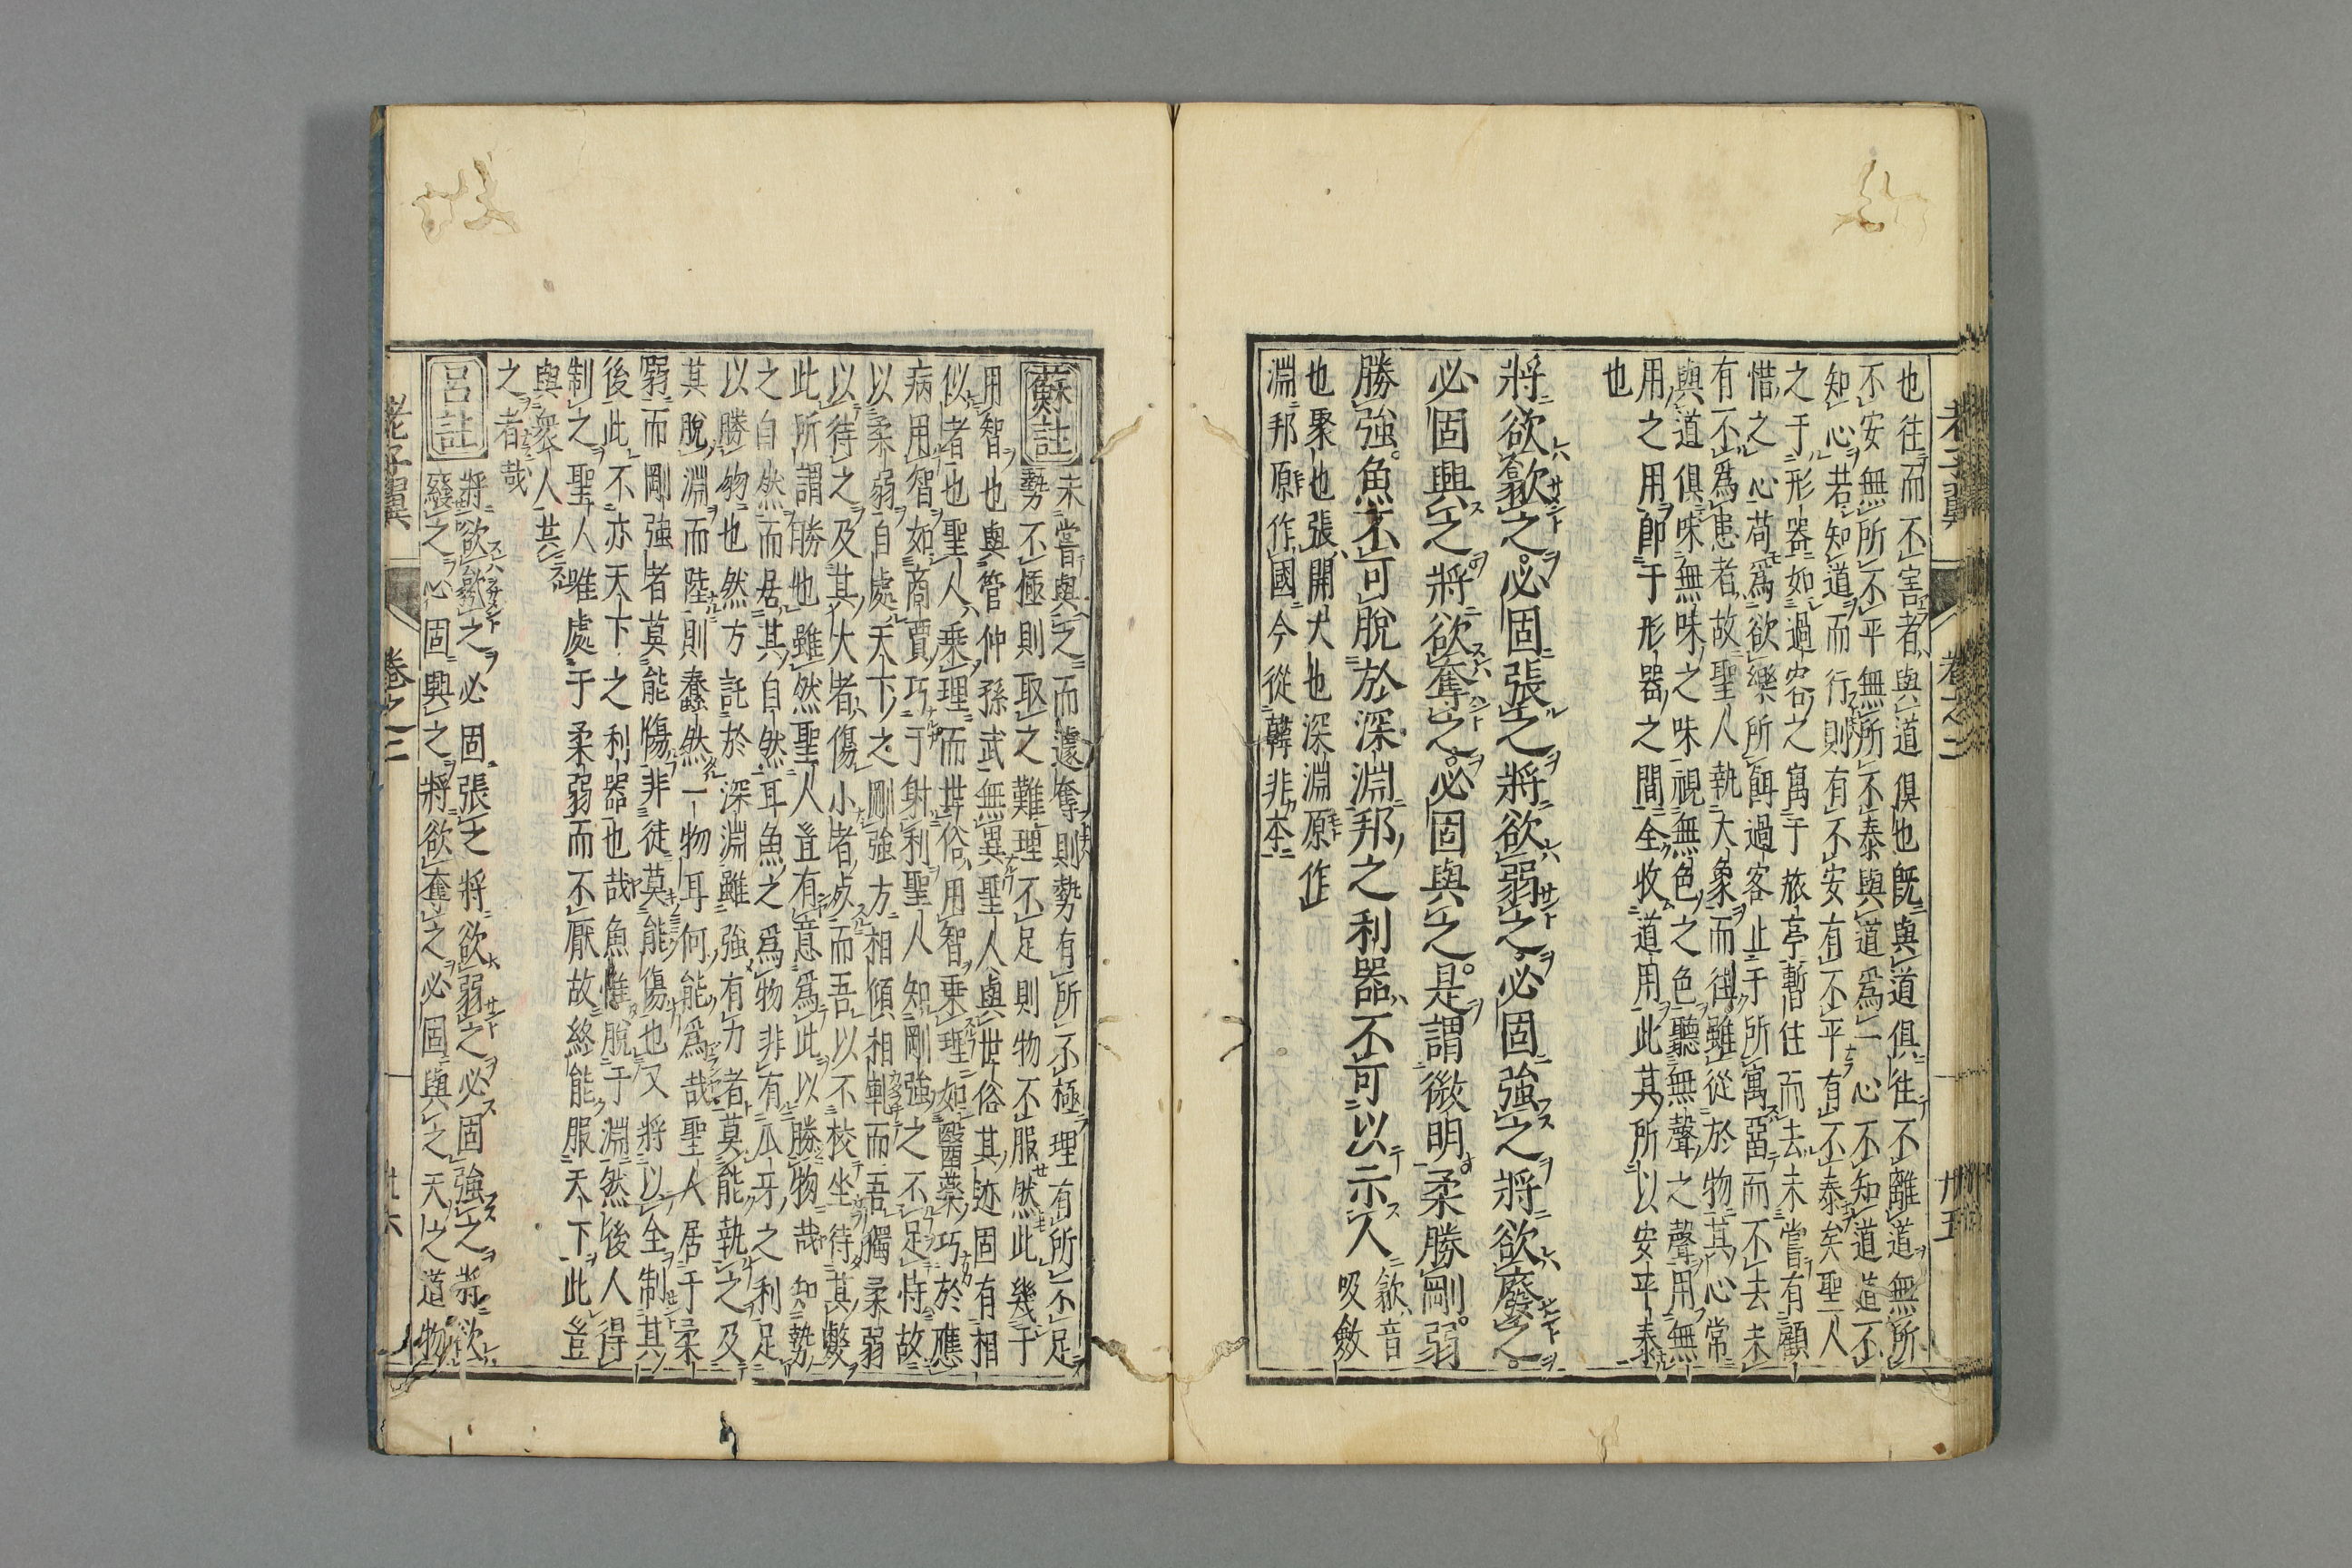 也往而不害者與道俱也既與道俱往不離道無所
不安無所不平無所不泰與道爲一心不知道道不
知心若知道而行則有不安有不平有不泰矣聖人
之于形器如過客之寓于旅亭暫住而去未嘗有顧
惜之心苟爲欲樂所餌過客止于所寓畱而不去未
有不爲患者故聖人執大象而御雖從於物其心常
與道俱味無味之味視無色之色聽無聲之聲用無
用之用卽于形器之間全收道用此其所以安平泰
也
將欲歙之必固張之將欲弱之必固強之將欲廢之
必固興之將欲奪之必固與之是謂微明柔勝剛弱
勝強魚不可脫於深淵邦之利器不可以示人
歙音
吸斂
也聚也張開大也深淵原作
淵邦原作國今從韓非本
老子翼 卷之二 卅五
蘇註
未嘗與之而遽奪則勢有所不極理有所不足
勢不極則取之難理不足則物不服然此幾于
用智也與管仲孫武無異聖人與世俗其迹固有相
似者也聖人乘理而世俗用智乗理如醫藥巧於應
病用智如商賈巧于射利聖人知剛強之不足恃故
以柔弱自處天下之剛強方相傾相軋而吾獨柔弱
以待之及其大者傷小者死而吾以不校坐待其斃
此所謂勝也雖然聖人豈有意爲此以勝物哉知勢
之自然而居其自然耳魚之爲物非有爪牙之利足
以勝物也然方託於深淵雖強有力者莫能執之及
其脫淵而陸則蠢然一物耳何能爲哉聖人居于柔
弱而剛強者莫能傷非徒莫能傷也又將以全制其
後此不亦天下之利器也哉魚惟脫于淵然後人得
制之聖人唯處于柔弱而不厭故終能服天下此豈
與衆人共
之者哉
呂註
將欲歙之必固張之將欲弱之必固強之將欲
廢之必固興之將欲奪之必固與之天之道物
老子翼 卷之二 卅六